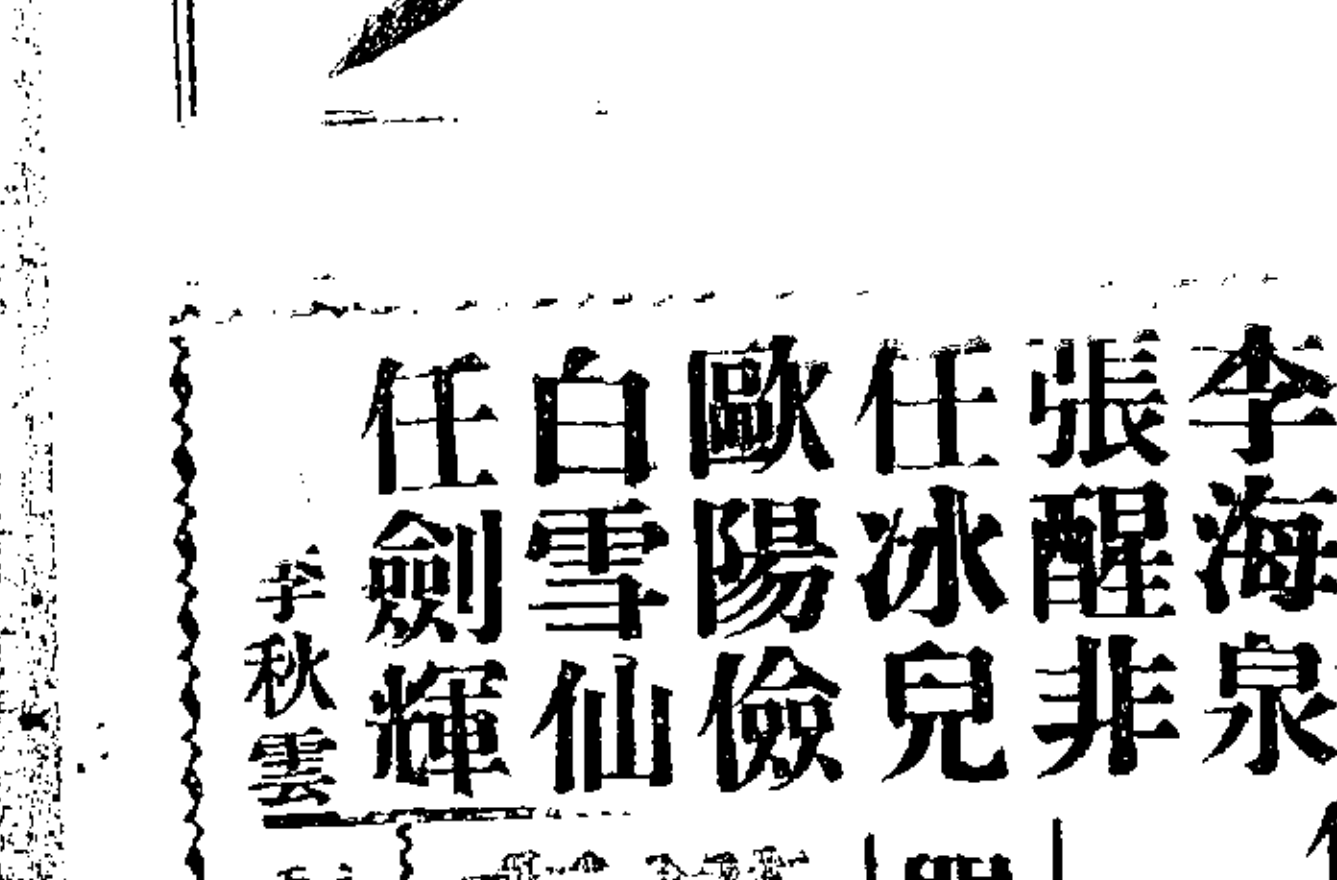 李海泉
張醒非
任冰兒
歐陽儉
白雪仙
任劍輝
李秋雲